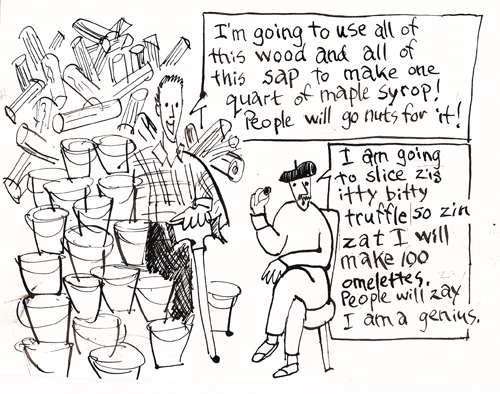 I'm going to use all of
this wood and all of
this sap to make one
quart of maple syrop!
People will go nuts for it!
I am going
to slice zis
itty bitty
truffle so zin
zat I will
make 100
omelettes.
People will zay
I am a genius.